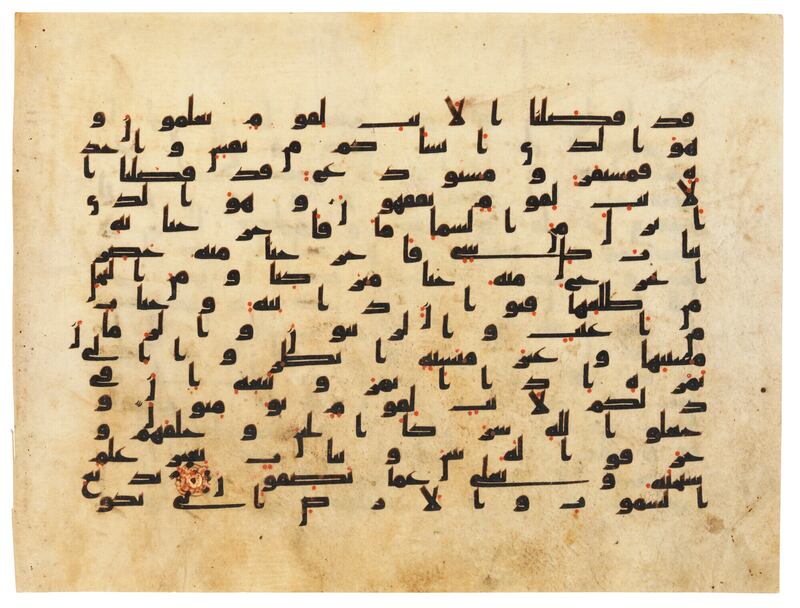 قد فصلنا الايت لقوم يعلمون و
هو الذي انشاكم من نفس واحد
ة فمستقر ومستودع قد فصلنا ا
لايت لقوم يفقهون وهو الذي
انزل من السما ما فاخرجنا به
نبات كل شي فاخرجنا منه خضر
ا نخرج منه حبا متراكبا ومن النخل
من طلعها قنوان دانيه وجنات
من اعنب والزيتون والرمان
مشتبها وغير متشبه انظروا الى
ثمره اذا اثمر وينعه ان في
ذلكم لايت لقوم يومنون و
جعلوا لله شركا الجن وخلقهم و
خرقوا له بنين وبنات بغير علم
سبحنه وتعلى عما يصفون بديع
السموت والارض انى يكون